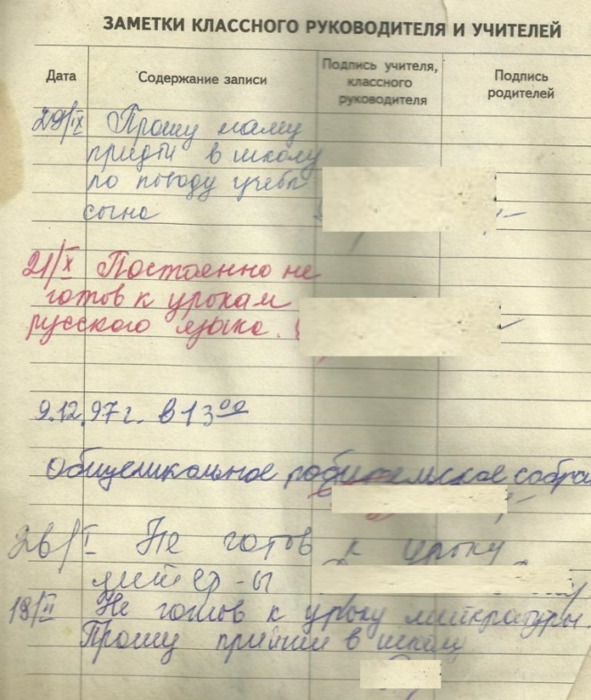 ЗАМЕТКИ КЛАССНОГО РУКОВОДИТЕЛЯ И УЧИТЕЛЕЙ
Дата Содержание записи Подпись учителя, классного руководителя Подпись родителей
29/IX Прошу маму
придти в школу
по поводу учебы
сына
21/X Постоянно не
готов к урокам
русского языка.
9.12.97 г. в 13 00
Общешкольное родительское собра
26/I Не готов к уроку
литер-ы
19/II Не готов к уроку литературы.
Прошу прийти в школу